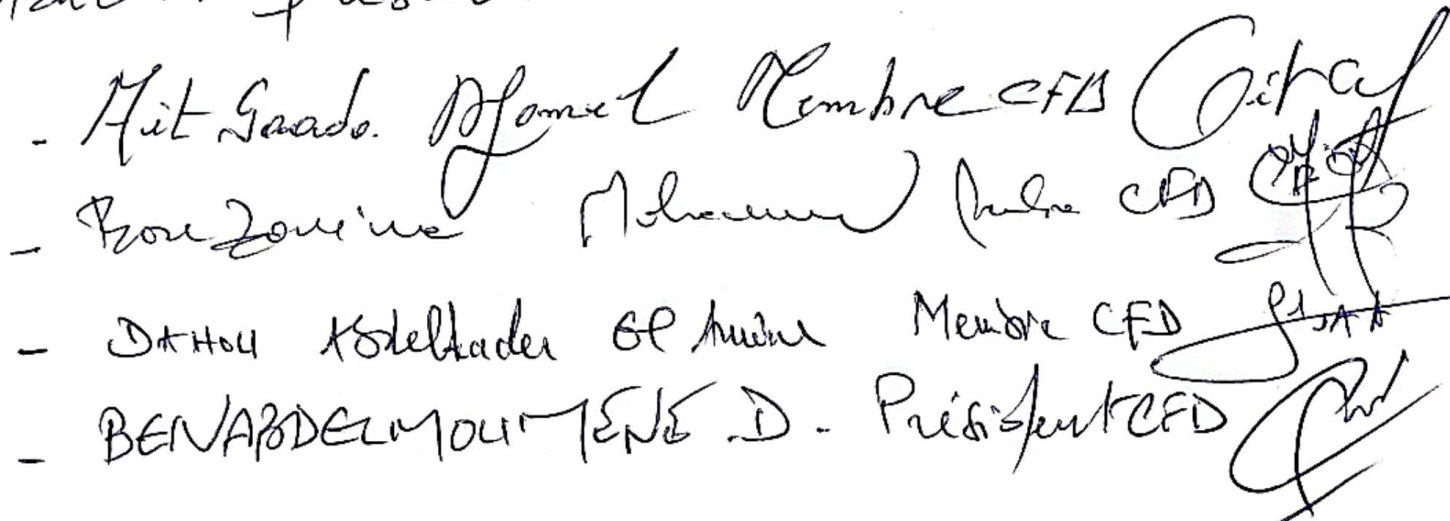 - Ait Saada Djamel Membre CFD
- Bouzouina Mohammed Membre CFD
- DAHOU Abdelkader El Amine Membre CFD
- BENABDELMOUMENE D. Président CFD